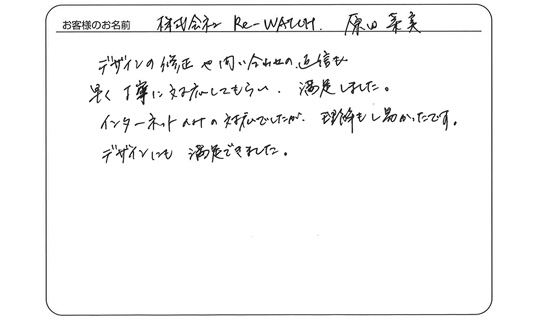 お客様のお名前 株式会社 Re-WATCH. 原田 菜実
デザインの修正や問い合わせの返信も
早く丁寧に対応してもらい、満足しました。
インターネットonlyの対応でしたが、理解もし易かったです。
デザインにも満足できました。